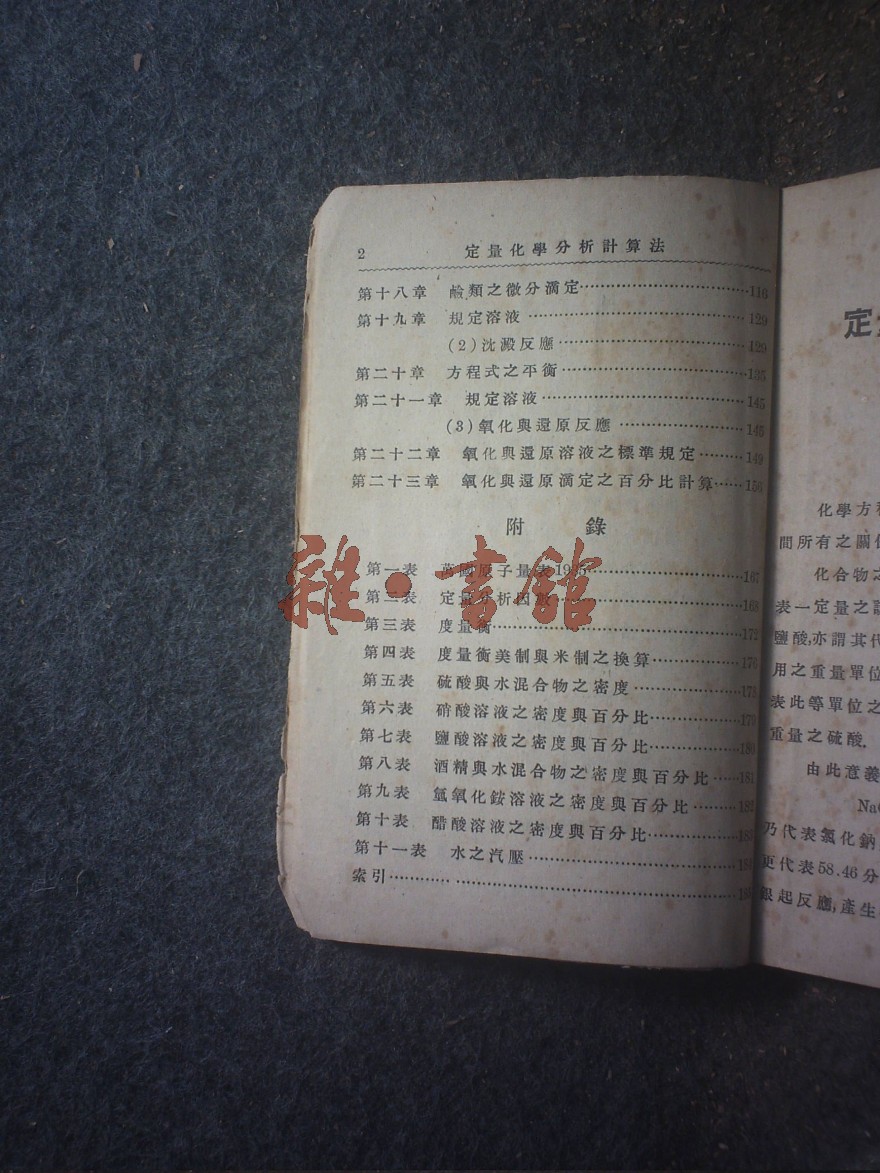 2 定量化學分析計算法
第十八章 鹼類之微分滴定……116
第十九章 規定溶液……129
(2)沈澱反應……129
第二十章 方程式之平衡……135
第二十一章 規定溶液……145
(3)氧化與還原反應……145
第二十二章 氧化與還原溶液之標準規定……149
第二十三章 氧化與還原滴定之百分比計算……156
附 錄
第一表 萬國原子量表……167
第二表 定量分析因數……168
第三表 度量衡……172
第四表 度量衡美制與米制之換算……176
第五表 硫酸與水混合物之密度……
第六表 硝酸溶液之密度與百分比……179
第七表 鹽酸溶液之密度與百分比……180
第八表 酒精與水混合物之密度與百分比……181
第九表 氫氧化銨溶液之密度與百分比……
第十表 醋酸溶液之密度與百分比……
第十一表 水之汽壓……
索引……
雜·書館
定
化學方
間所有之關
化合物之
表一定量之
鹽酸,亦謂其代
用之重量單位
表此等單位之
重量之硫酸.
由此意義
Na
乃代表氯化鈉
更代表58.46分
銀起反應,產生